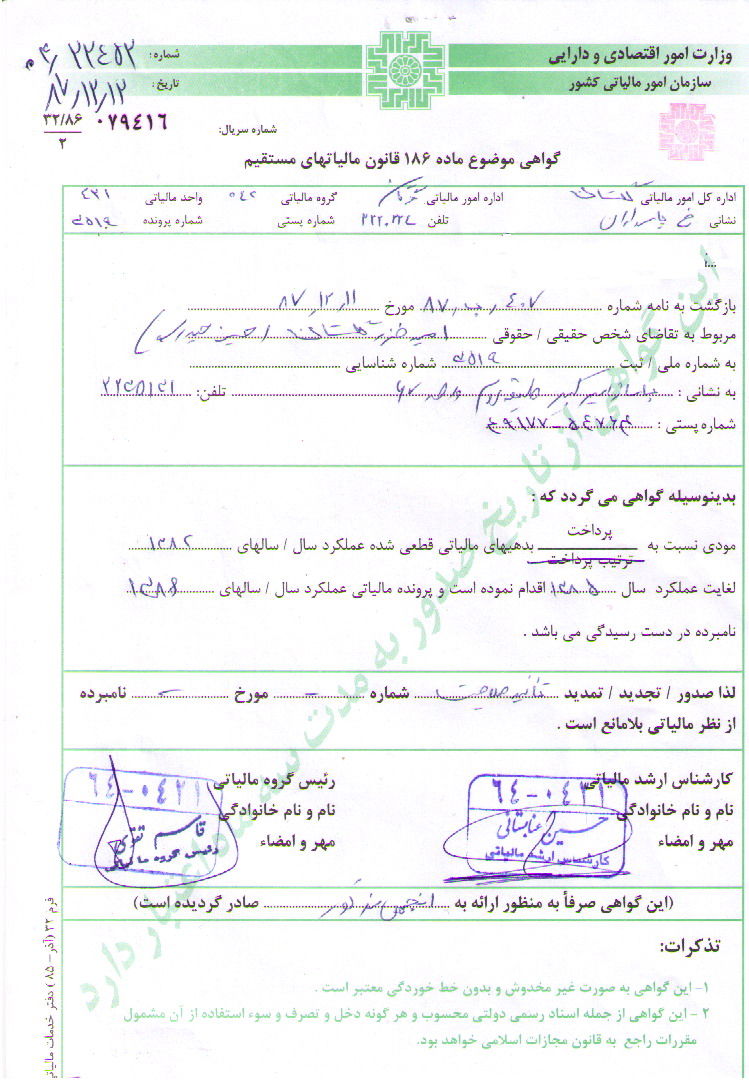 وزارت امور اقتصادی و دارایی
سازمان امور مالیاتی کشور
شماره: ۲۲۴۵۲
تاریخ: ۸۷/۱۲/۱۲
شماره سریال: ۰۷۹۴۱۶ ۳۲/۸۶
۲
گواهی موضوع ماده ۱۸۶ قانون مالیاتهای مستقیم
اداره کل امور مالیاتی گلستان اداره امور مالیاتی گرگان گروه مالیاتی ۰۴۲ واحد مالیاتی ۴۲۱
نشانی خ پاسداران تلفن شماره پستی شماره پرونده
بازگشت به نامه شماره مورخ ۸۷/۱۲/۱۱
مربوط به تقاضای شخص حقیقی / حقوقی
به شماره ملی / ثبت شماره شناسایی
به نشانی : پاساژ امیرکبیر طبقه دوم واحد ۶۲ تلفن:
شماره پستی : ۴۹۱۷۷-۵۴۷۶۳
بدینوسیله گواهی می گردد که :
پرداخت
مودی نسبت به بدهیهای مالیاتی قطعی شده عملکرد سال / سالهای ۱۳۸۲
ترتیب پرداخت
لغایت عملکرد سال ۱۳۸۵ اقدام نموده است و پرونده مالیاتی عملکرد سال / سالهای ۱۳۸۶
نامبرده در دست رسیدگی می باشد .
لذا صدور / تجدید / تمدید تائید صلاحیت شماره - مورخ - نامبرده
از نظر مالیاتی بلامانع است .
کارشناس ارشد مالیاتی رئیس گروه مالیاتی
نام و نام خانوادگی نام و نام خانوادگی
مهر و امضاء مهر و امضاء
۶۴-۰۴۲۱
حسین
کارشناس ارشد مالیاتی
۶۴-۰۴۲۱
قاسم تقوی
رئیس گروه مالیاتی
(این گواهی صرفاً به منظور ارائه به صادر گردیده است)
تذکرات:
۱- این گواهی به صورت غیر مخدوش و بدون خط خوردگی معتبر است .
۲ - این گواهی از جمله اسناد رسمی دولتی محسوب و هر گونه دخل و تصرف و سوء استفاده از آن مشمول
مقررات راجع به قانون مجازات اسلامی خواهد بود.
این گواهی از تاریخ صدور به مدت سه ماه اعتبار دارد
فرم ۳۲ (آذر - ۸۵ ) دفتر خدمات مالیاتی